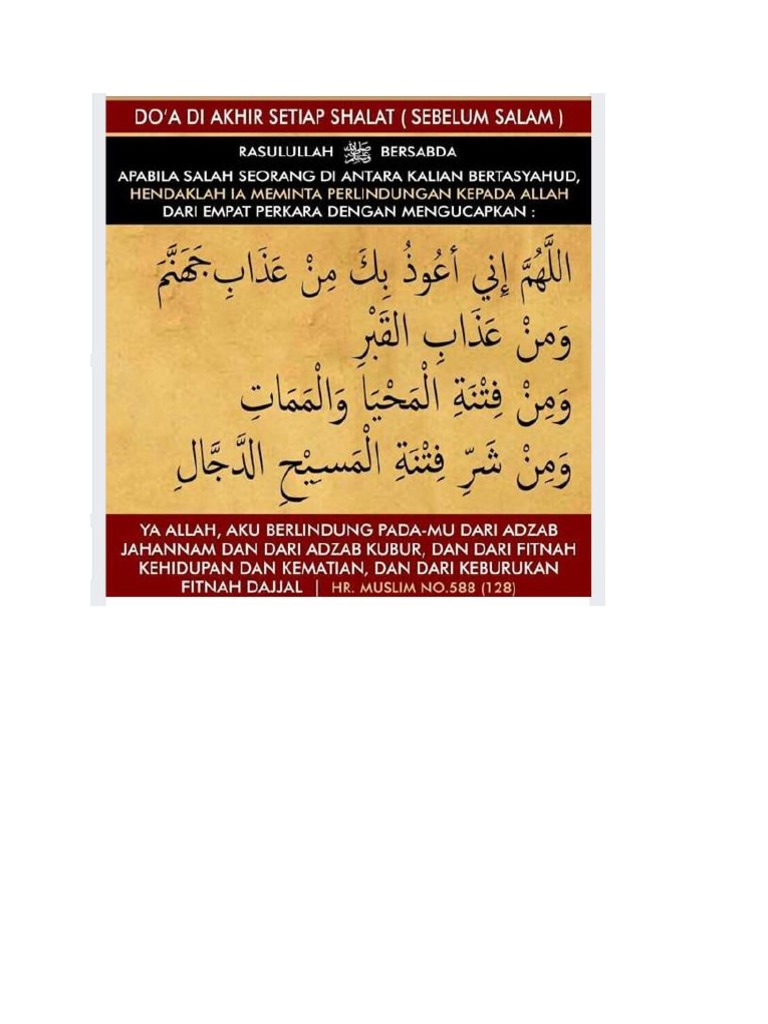 DO'A DI AKHIR SETIAP SHALAT ( SEBELUM SALAM )
RASULULLAH ﷺ BERSABDA
APABILA SALAH SEORANG DI ANTARA KALIAN BERTASYAHUD,
HENDAKLAH IA MEMINTA PERLINDUNGAN KEPADA ALLAH
DARI EMPAT PERKARA DENGAN MENGUCAPKAN :
اللَّهُمَّ إِنِي أَعُوذُ بِكَ مِنْ عَذَابِ جَهَنَّمَ
وَمِنْ عَذَابِ القَبْرِ
وَمِنْ فِتْنَةِ الْمَحْيَا وَالْمَمَاتِ
وَمِنْ شَرِّ فِتْنَةِ الْمَسِيْحِ الدَّجَّالِ
YA ALLAH, AKU BERLINDUNG PADA-MU DARI ADZAB
JAHANNAM DAN DARI ADZAB KUBUR, DAN DARI FITNAH
KEHIDUPAN DAN KEMATIAN, DAN DARI KEBURUKAN
FITNAH DAJJAL | HR. MUSLIM NO.588 (128)